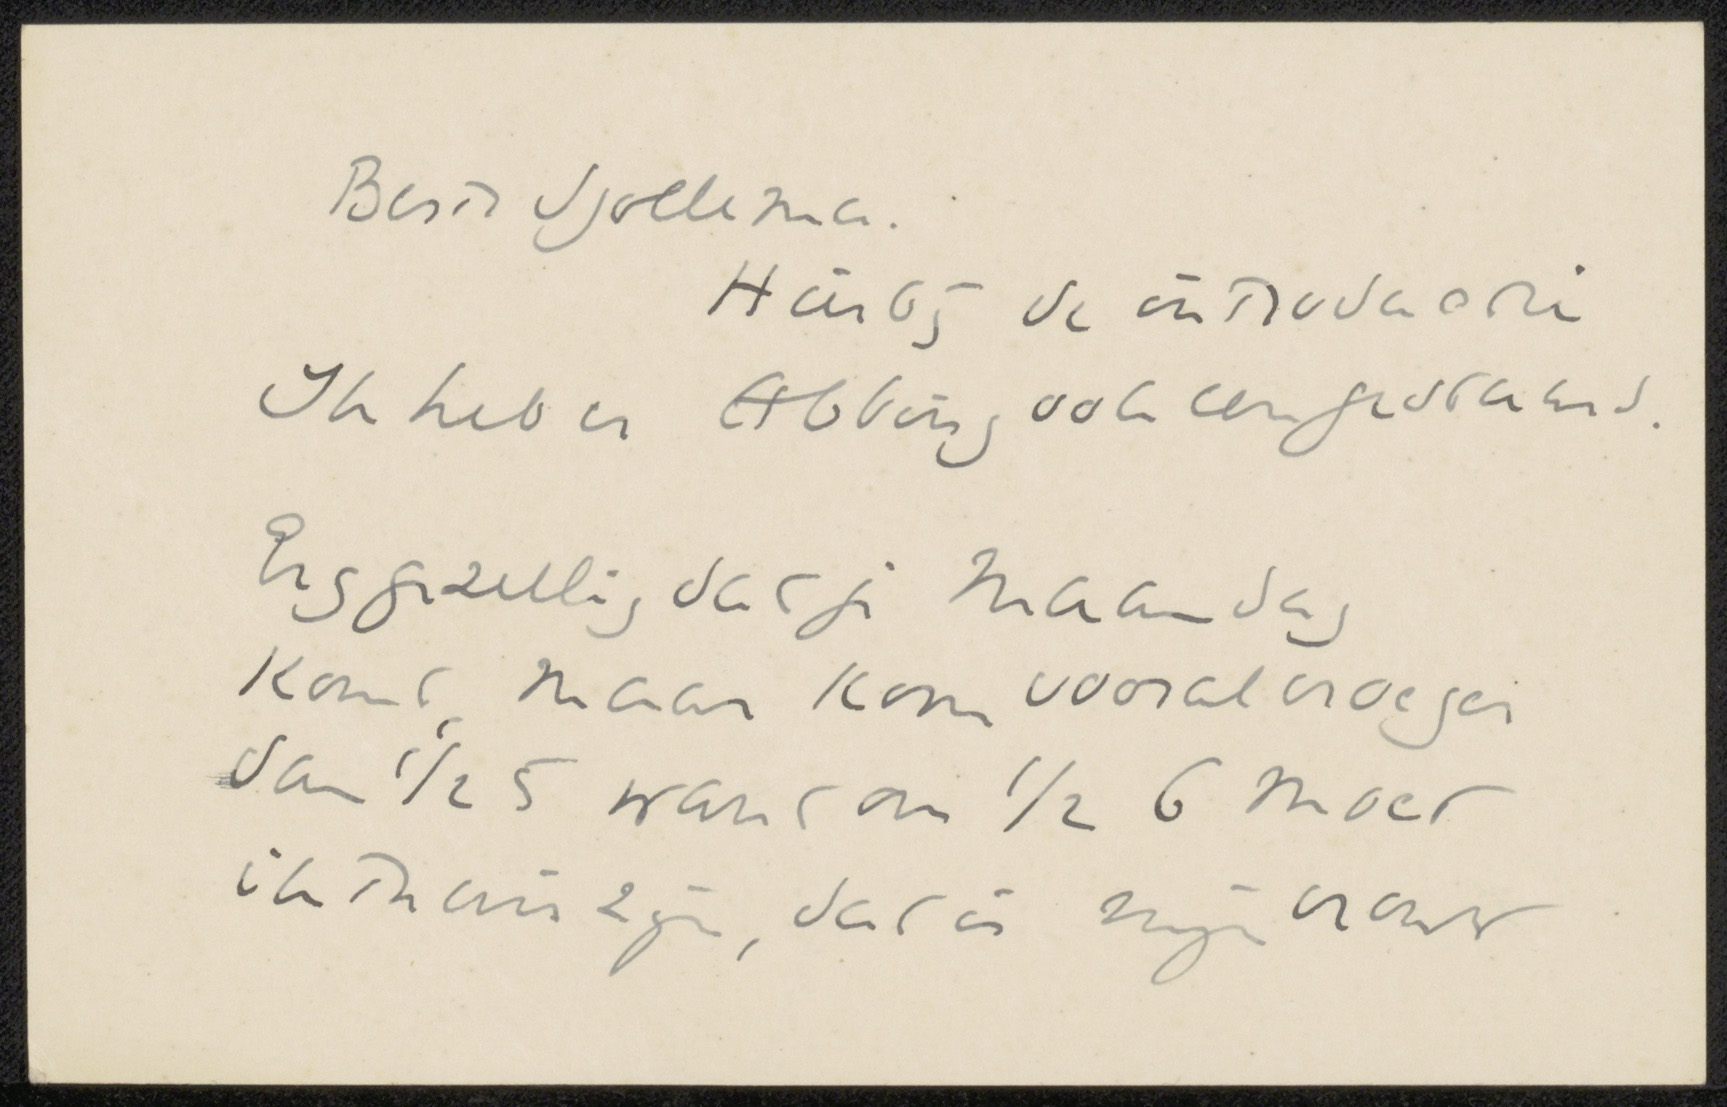 Beste Sjollema.
Hierbij de introductie
Ik heb er Abbing ook een gestuurd.
Erg gezellig dat je Maandag
komt, maar kom vooral vroeger
dan 1/2 5 want om 1/2 6 moet
ik thuis zijn, dat is mijn vrouw